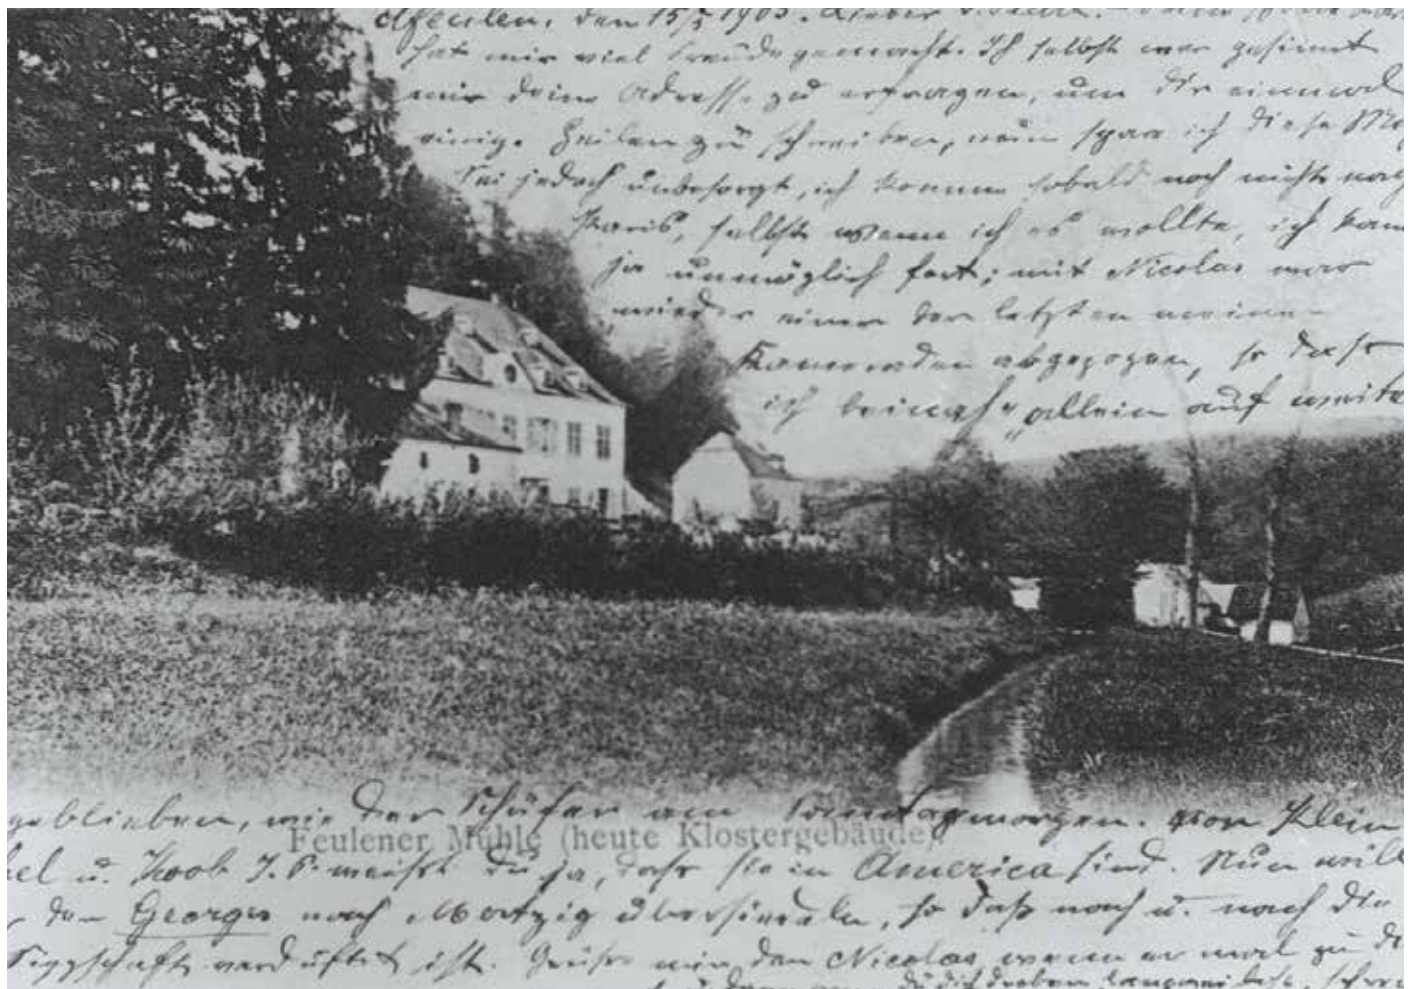 feulen, den 15/5 1903. Lieber
hat mir viel Freude gemacht. Ich selbst war gesinnt
mir deine Adresse zu erfragen, um dir einmal
einige Zeilen zu schreiben, nun spare ich diese
Sei jedoch unbesorgt, ich komme sobald noch nicht nach
Paris, selbst wenn ich es wollte, ich kann
ja unmöglich fort; mit Nicolas war
wieder einer der letzten meiner
Kameraden abgezogen, so dass
ich beinahe „allein auf weiter
geblieben, wie der Schäfer am Sonntagmorgen. Von Klein
Feulener Mühle (heute Klostergebäude).
el u. J. P. weißt du ja, dass sie in America sind. Nun will
der Georges nach Mertzig übersiedeln, so daß nach u. nach die
verduftet ist. Grüße mir den Nicolas, wenn er mal zu